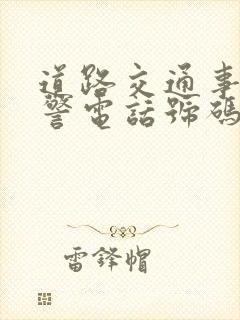 道路交通事
警電話號碼
雷鋒帽